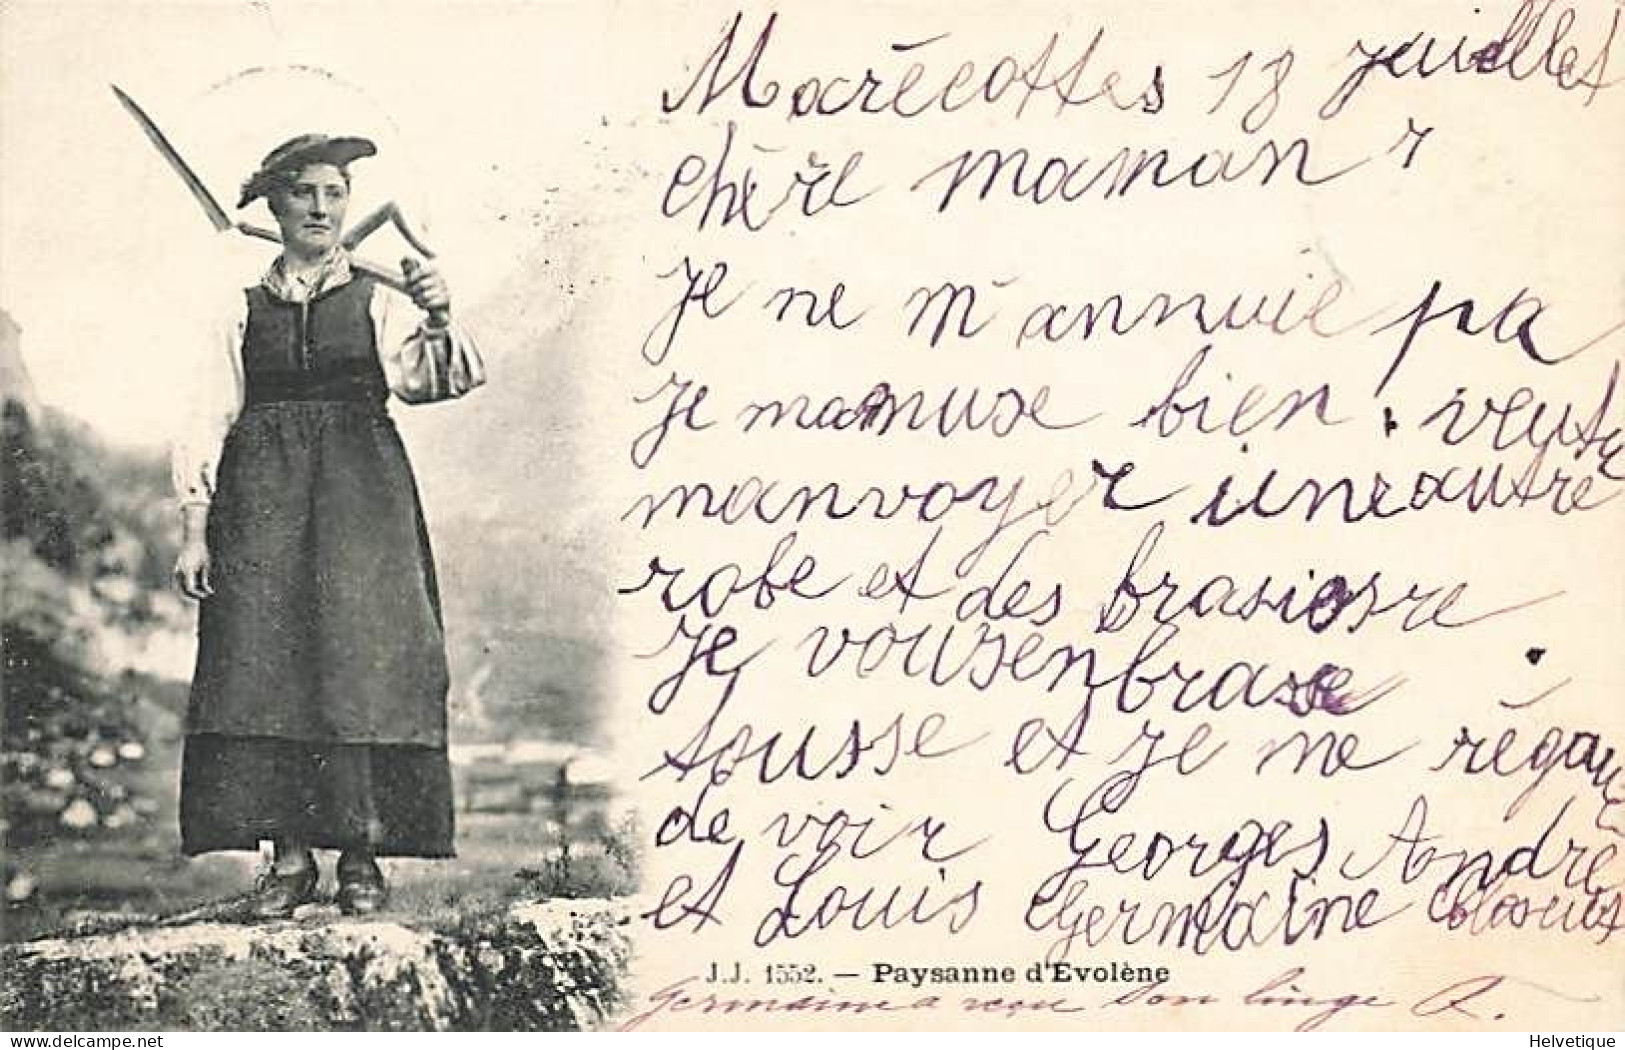 Marécottes 18 juillet
chère maman
Je ne m'annuie pa
Je mamuse bien. veytu
manvoyer une autre
robe et des brasiosre
Je vousenbrasse
tousse et je me régoui
de voir Georges, André
et Louis Germaine
J.J. 1552. — Paysanne d'Evolène
Germaine a reçu son linge R.
Helvetique
delcampe.net